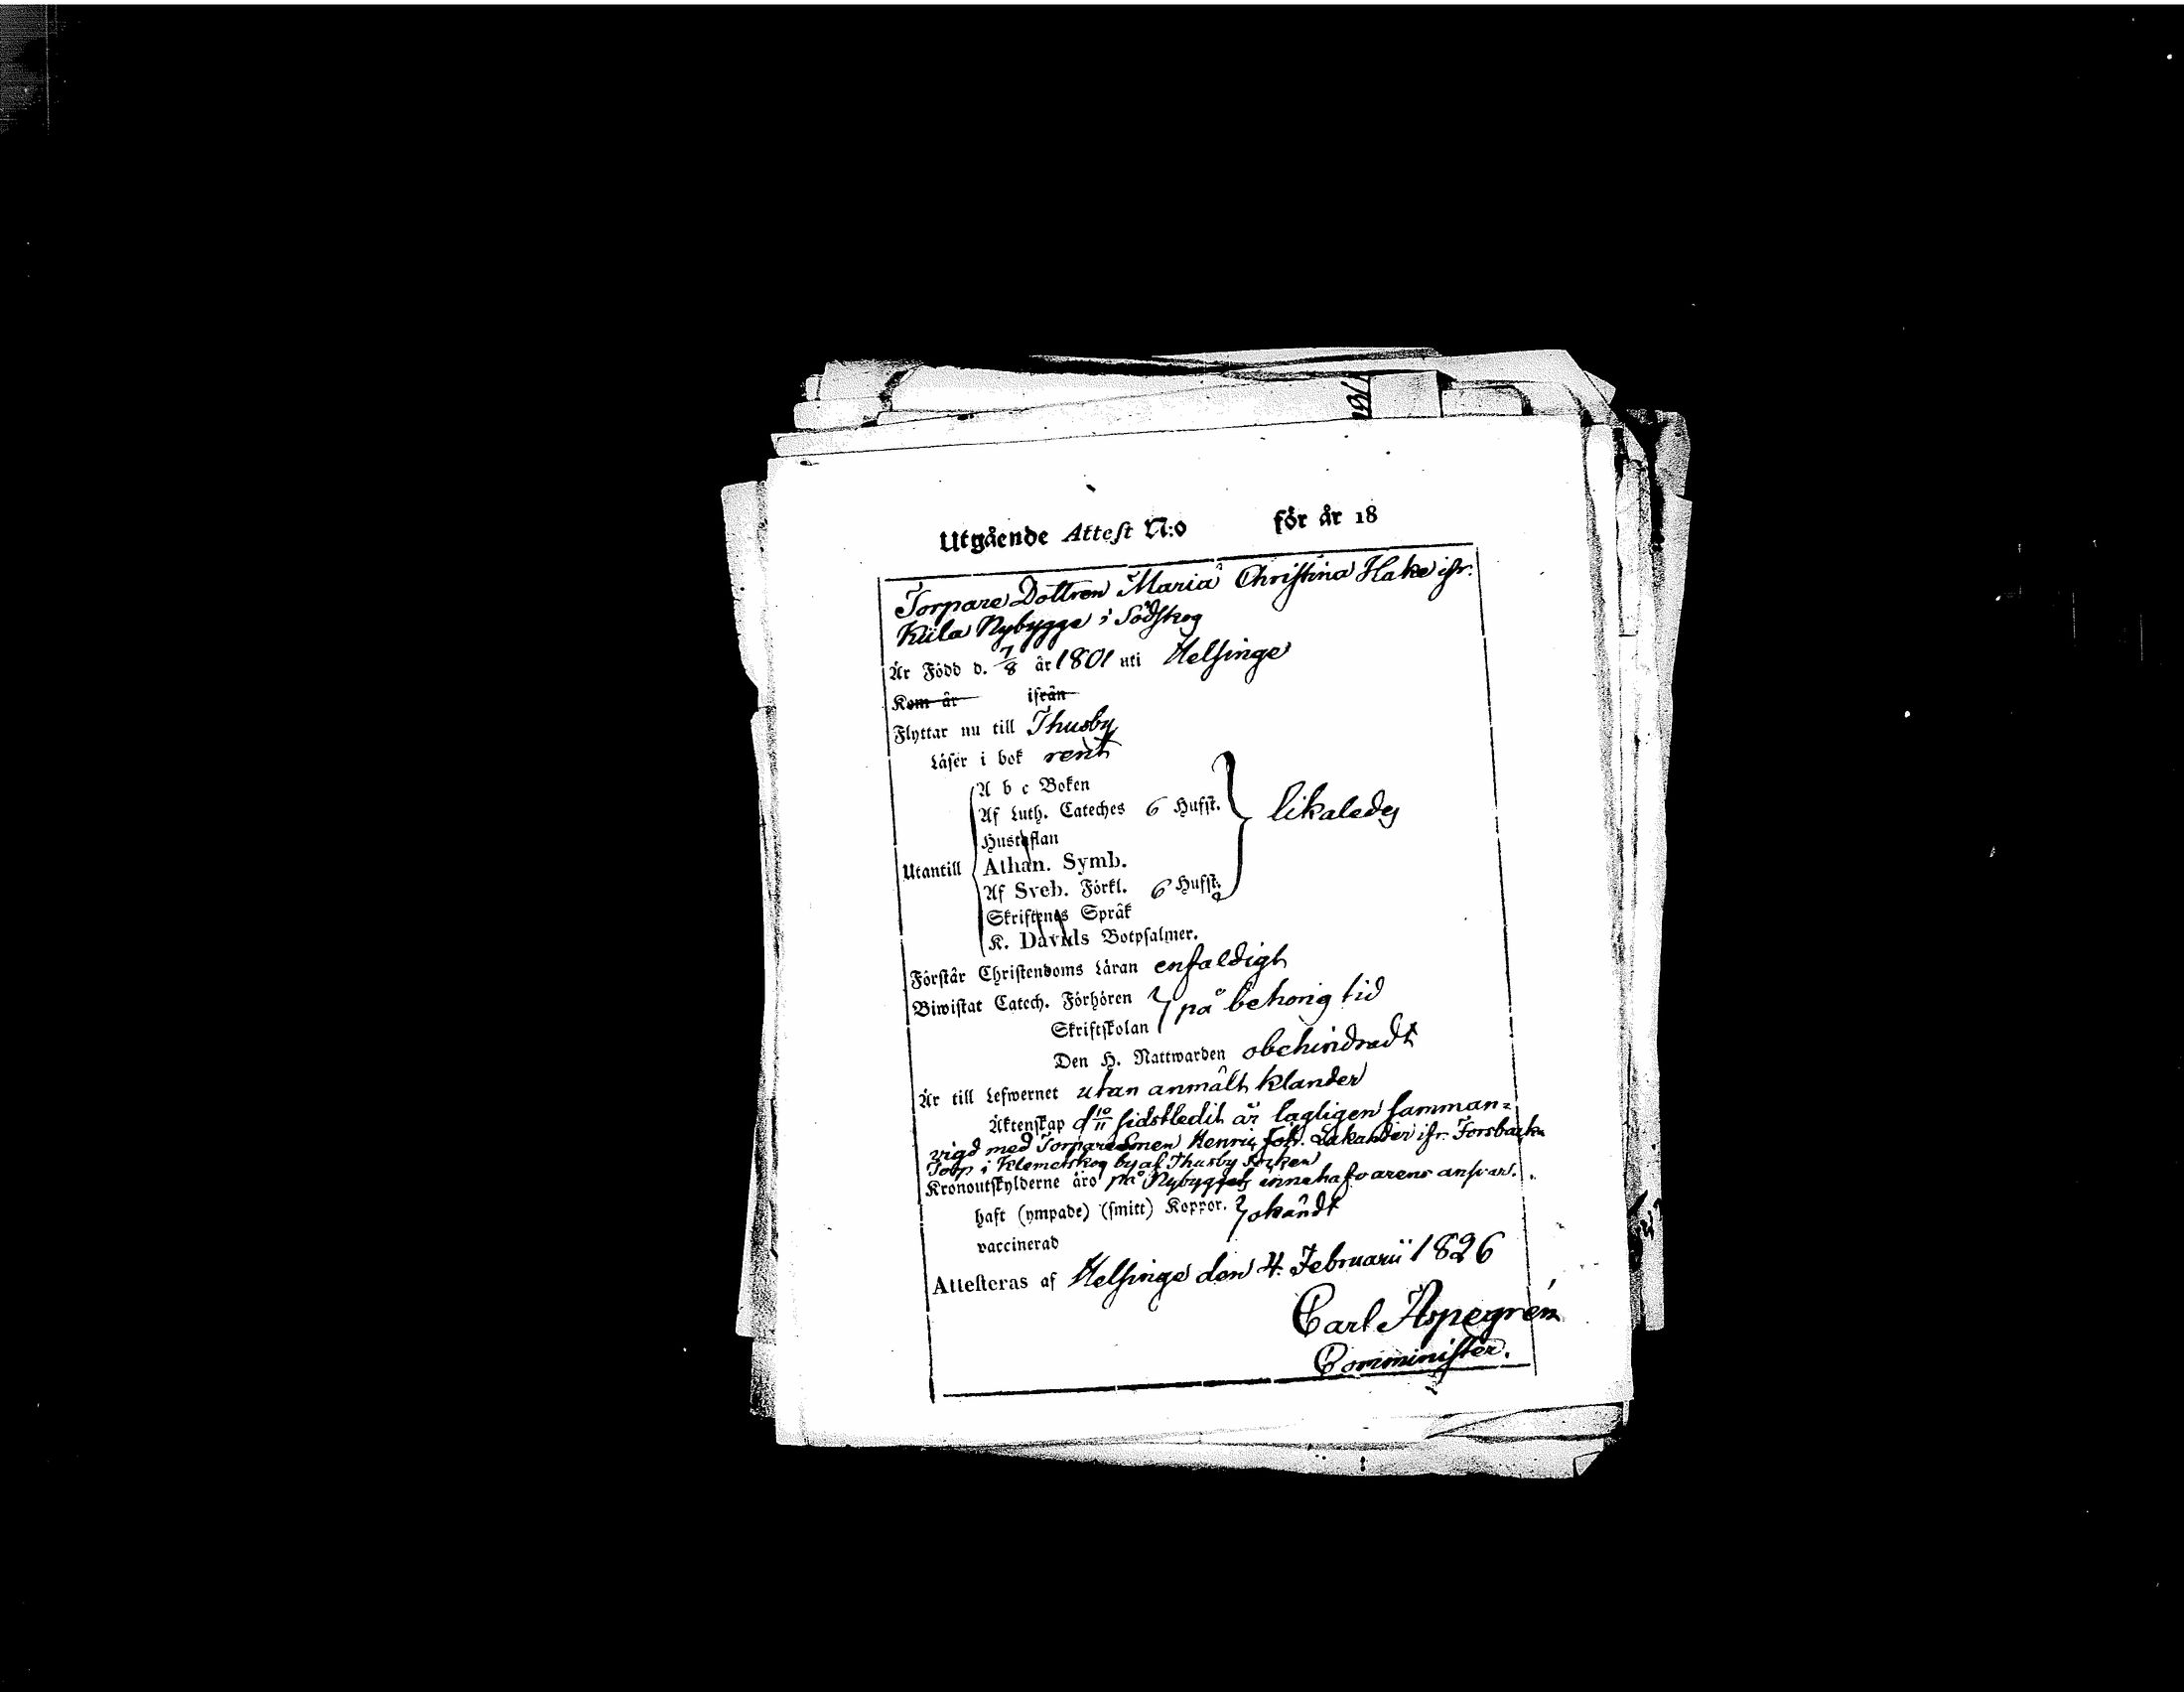 Utgående Attest N:o för år 18
Torpare Dottren Maria Christina Hake ifr.
Kiila Nybygge i Södskog
Är Född d. 7/8 år 1801 uti Helsinge
Kom år ifrån
Flyttar nu till Thusby
Läser i bok rent
Utantill
A b c Boken
Af Luth. Cateches 6 Hufst.
Hustaflan
Athan. Symb.
Af Sveb. Förkl. 6 Hufst.
Skriftenes Språk
K. Davids Botpsalmer.
likaledes
Förstår Christendoms Läran enfaldigt
Biwistat Catech. Förhören
Skriftskolan
på behörig tid
Den H. Nattwarden obehindradt
Är till Lefwernet utan anmält klander
Äktenskap d 10/11 sidstledit år lagligen samman-
vigd med Torpare Henric Joh. Lakander ifr. Forsback
Torp i Klemetskog by af Thusby Socken
Kronoutskylderne äro på Nybyggets innehafvarens ansvar.
haft (ympade) (smitt) Koppor.
vaccinerad
okändt
Attesteras af Helsinge den 4. Februarii 1826
Carl Aspegrén
Comminister.